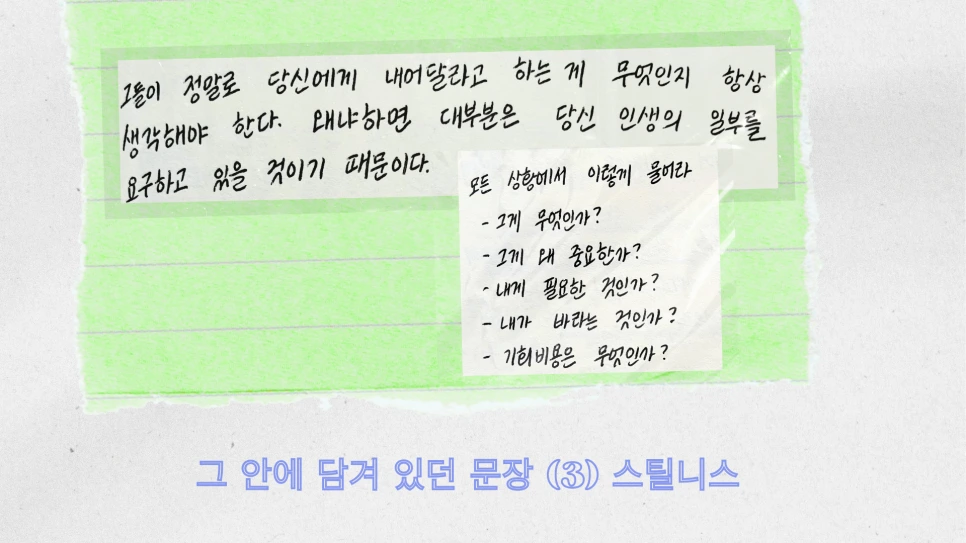 그들이 정말로 당신에게 내어달라고 하는 게 무엇인지 항상
생각해야 한다. 왜냐하면 대부분은 당신 인생의 일부를
요구하고 있을 것이기 때문이다.
모든 상황에서 이렇게 물어라
- 그게 무엇인가?
- 그게 왜 중요한가?
- 내게 필요한 것인가?
- 내가 바라는 것인가?
- 기회비용은 무엇인가?
그 안에 담겨 있던 문장 (3) 스틸니스